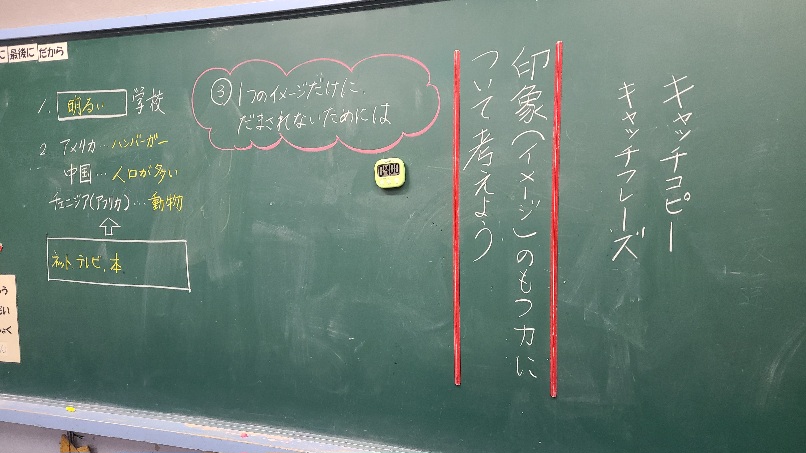 キャッチコピー
キャッチフレーズ
印象(イメージ)のもつ力に
ついて考えよう
③ 1つのイメージだけに
だまされないためには
04:00
最後に だから
1. 明るい 学校
2. アメリカ…ハンバーガー
中国…人口が多い
チュニジア(アフリカ)…動物
ネット テレビ、本